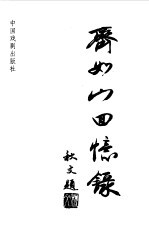 齊如山回憶錄
秋文題
中国戏剧出版社